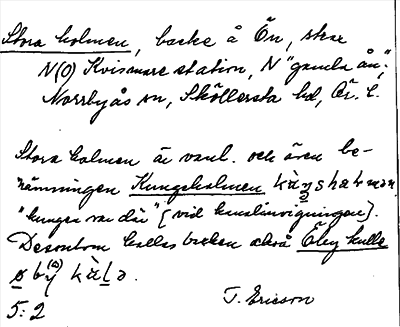 Stora holmen, backe å Ön, strax
N(O) Kvismare station, N "gamla ån",
Norrbyås sn, Sköllersta hd, Ör. l.
Stora holmen är vanl. och även be-
nämningen Kungsholmen
"kungen var där" (vid kanalinvigningen).
Dessutom kallas backen också Öby kulle
5:2
T. Ericson